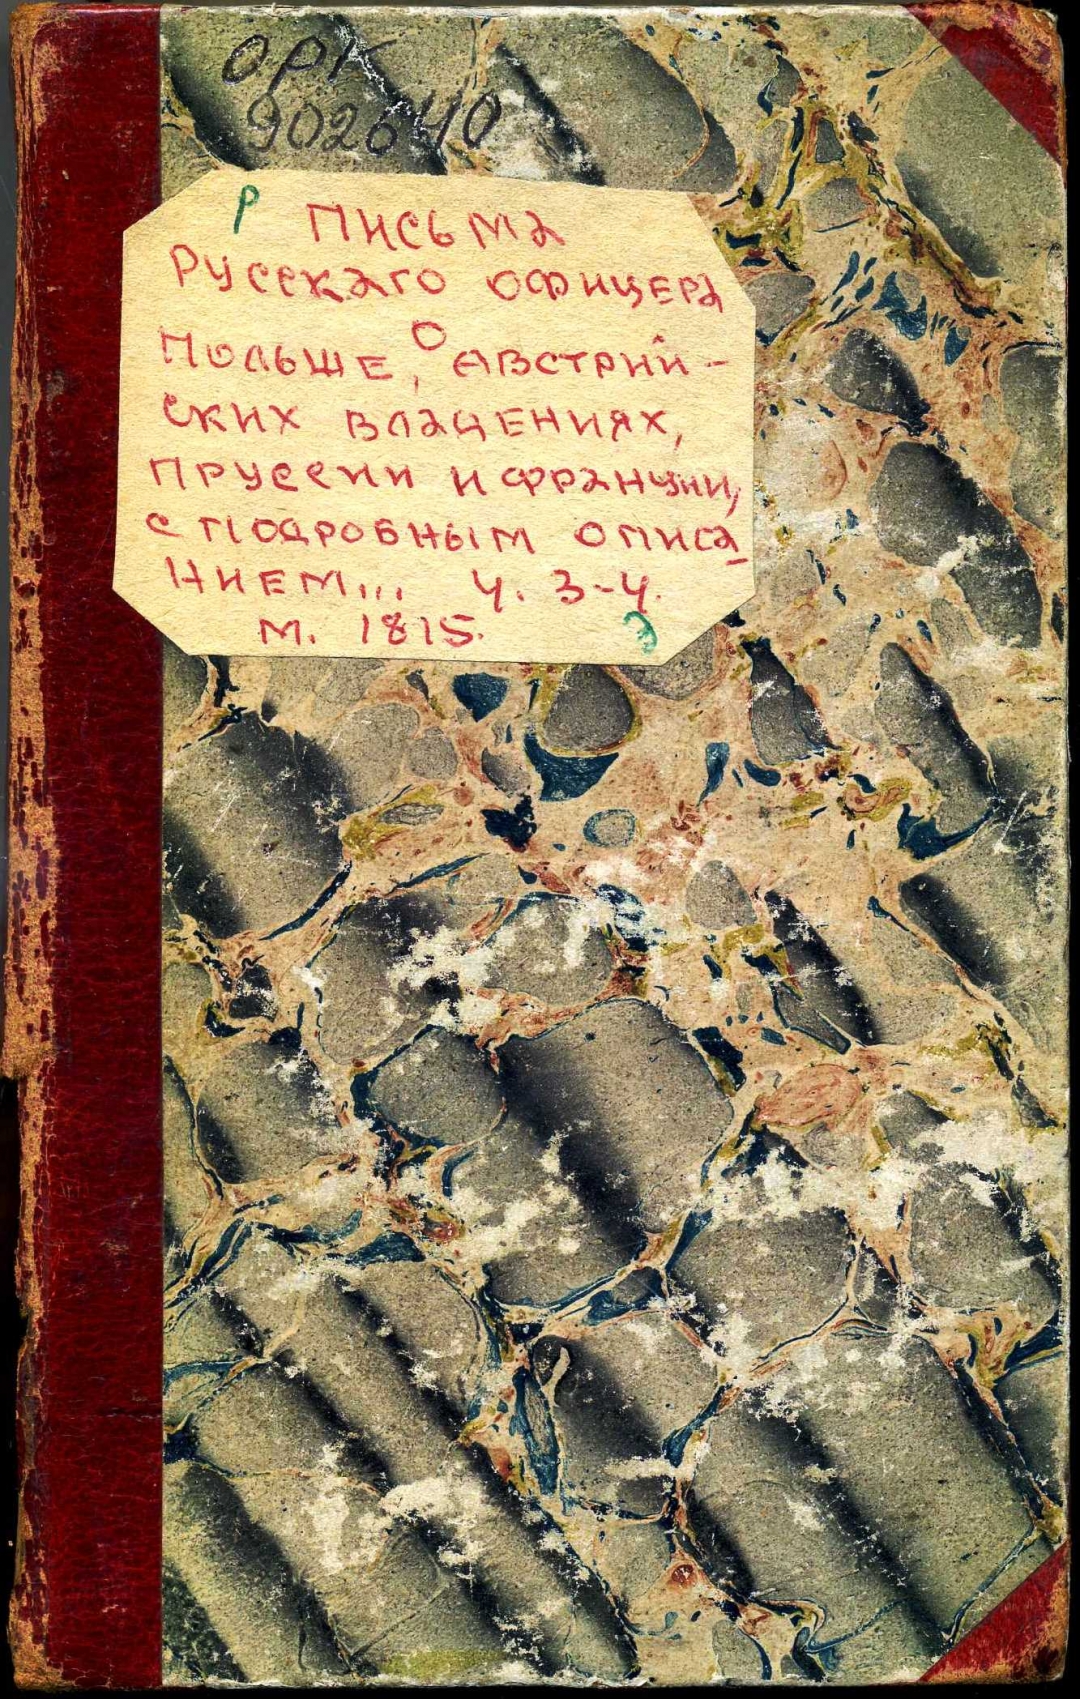 ОРК
902640
Р ПИСЬМА
РУССКАГО ОФИЦЕРА
О
ПОЛЬШЕ, АВСТРИЙ-
СКИХ ВЛАДЕНИЯХ,
ПРУССИИ И ФРАНЦИИ,
С ПОДРОБНЫМ ОПИСА
НИЕМ... Ч. 3-4.
М. 1815. Э